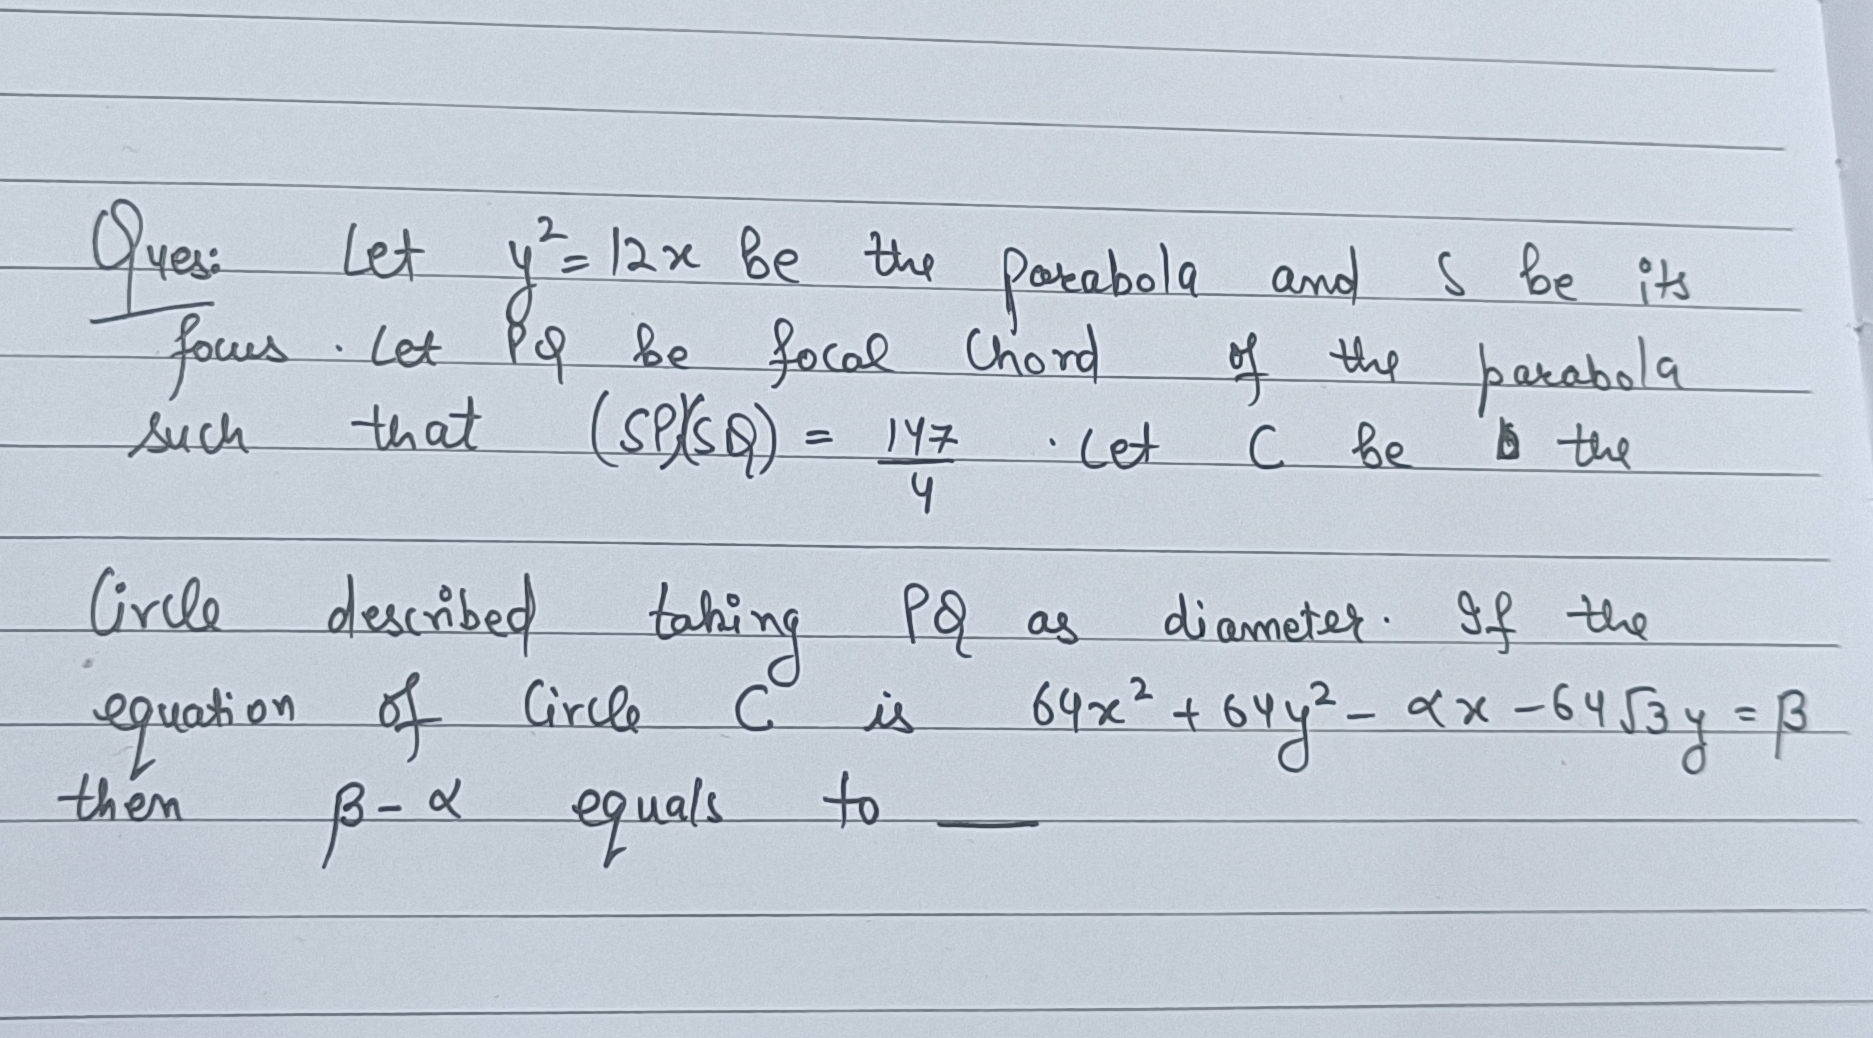 Ques: Let y² = 12x be the parabola and S be its
focus. Let PQ be focal chord of the parabola
such that (SP)(SQ) = 147/4 . Let C be the
Circle described taking PQ as diameter. If the
equation of Circle C is 64x² + 64y² - αx - 64√3y = β
then β - α equals to __